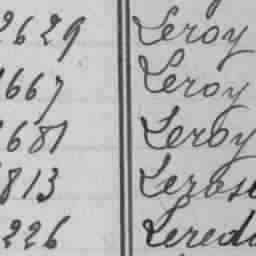 2629 Leroy
1667 Leroy
1681 Leroy
813 Leros
226 Lered